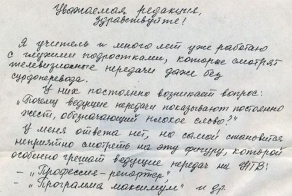 Уважаемая редакция,
здравствуйте!
Я учитель и много лет уже работаю
с глухими подростками, которые смотрят
телевизионные передачи даже без
сурдоперевода.
У них постоянно возникает вопрос:
„Почему ведущие передач показывают постоянно
жест, обозначающий плохое слово?"
У меня ответа нет, но самой становится
неприятно смотреть на эту фигуру, которой
особенно грешат ведущие передач на НТВ:
– „Профессия-репортёр"
– „Программа максимум" и др.